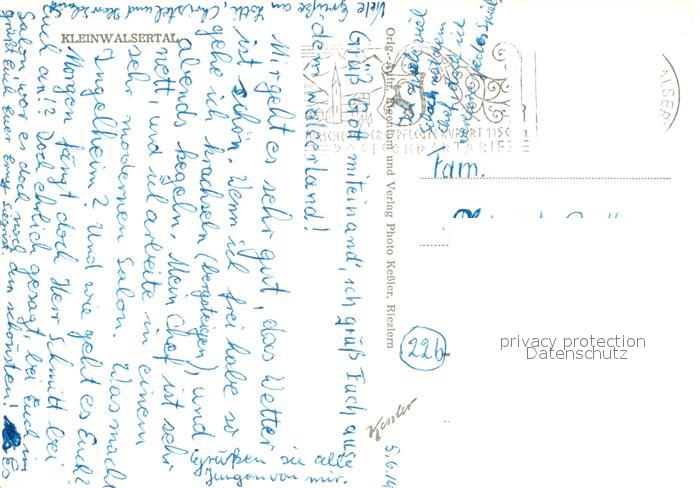 KLEINWALSERTAL
Grüß Gott miteinand', ich grüß Euch aus
dem Walserland!
Mir geht es sehr gut, das Wetter
ist schön. Wenn ich frei habe so
gehe ich krachseln (bergsteigen) und
abends kegeln. Mein Chef ist sehr
nett, und ich arbeite in einem
sehr modernen Salon. Was macht
Ingelheim? Und wie geht es Euch?
Morgen fängt doch Herr Schmitt bei
Euch an!? Doch ehrlich gesagt bei Euch im
Salon war es doch noch am schönsten! Es
grüßt Euch Euer Ernst
Viele Grüße an Lotti, Christel und Herr Schmitt
Grüßen sie alle
Jungen von mir.
Orig.-Aufn. u. Verlag Photo Keßler, Riezlern
Fam.
22b
Kessler
privacy protection
Datenschutz